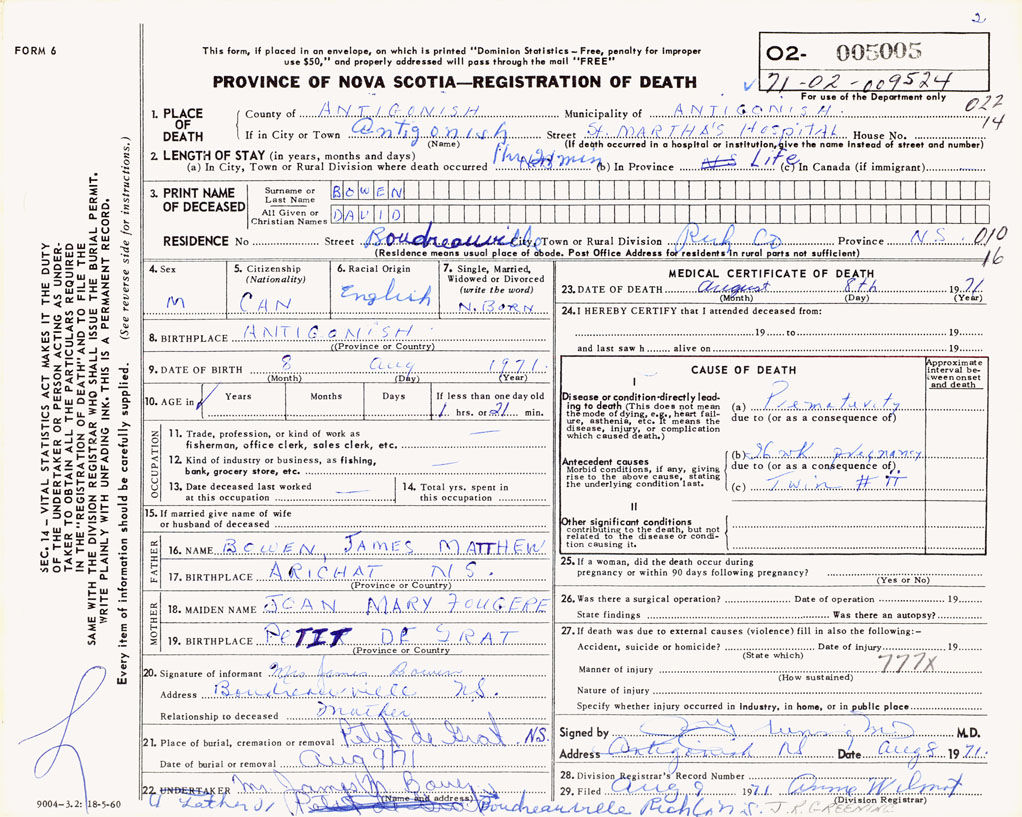 2
FORM 6
This form, if placed in an envelope, on which is printed "Dominion Statistics – Free, penalty for improper
use $50," and properly addressed will pass through the mail "FREE"
PROVINCE OF NOVA SCOTIA—REGISTRATION OF DEATH
02- 005005
71-02-009524
For use of the Department only
022
14
1. PLACE OF DEATH
County of ANTIGONISH Municipality of ANTIGONISH
If in City or Town Antigonish Street St. MARTHA'S HOSPITAL House No.
(Name) (If death occurred in a hospital or institution, give the name instead of street and number)
2. LENGTH OF STAY (in years, months and days)
(a) In City, Town or Rural Division where death occurred 1 hr 21 min (b) In Province Life (c) In Canada (if immigrant)
3. PRINT NAME OF DECEASED
Surname or Last Name BOWEN
All Given or Christian Names DAVID
RESIDENCE No Street Boudreauville City, Town or Rural Division Rich Co Province N.S. 010
16
(Residence means usual place of abode. Post Office Address for residents in rural parts not sufficient)
4. Sex
M
5. Citizenship
(Nationality)
CAN
6. Racial Origin
English
7. Single, Married,
Widowed or Divorced
(write the word)
N. BORN
8. BIRTHPLACE ANTIGONISH
(Province or Country)
9. DATE OF BIRTH 8 Aug 1971
(Month) (Day) (Year)
10. AGE in Years Months Days If less than one day old
1 hrs. or 21 min.
OCCUPATION
11. Trade, profession, or kind of work as
fisherman, office clerk, sales clerk, etc.
12. Kind of industry or business, as fishing,
bank, grocery store, etc.
13. Date deceased last worked
at this occupation
14. Total yrs. spent in
this occupation
15. If married give name of wife
or husband of deceased
FATHER
16. NAME BOWEN, JAMES MATTHEW
17. BIRTHPLACE ARICHAT N S.
(Province or Country)
MOTHER
18. MAIDEN NAME JOAN MARY FOUGERE
19. BIRTHPLACE PETIT DE GRAT
(Province or Country)
20. Signature of informant Mrs James Bowen
Address Boudreauville N.S.
Relationship to deceased Mother
21. Place of burial, cremation or removal Petit de Grat N.S.
Date of burial or removal Aug 9/71
22. UNDERTAKER
(Name and address)
Father Boudreauville Rich Co N.S. J.R. GREENING
MEDICAL CERTIFICATE OF DEATH
23. DATE OF DEATH August 8th 1971
(Month) (Day) (Year)
24. I HEREBY CERTIFY that I attended deceased from:
19 to 19
and last saw h alive on 19
CAUSE OF DEATH
Approximate interval between onset and death
I
Disease or condition directly leading to death (This does not mean the mode of dying, e.g., heart failure, asthenia, etc. It means the disease, injury, or complication which caused death.)
(a) Prematurity
due to (or as a consequence of)
Antecedent causes
Morbid conditions, if any, giving rise to the above cause, stating the underlying condition last.
(b) 26 wk pregnancy
due to (or as a consequence of)
(c) Twin # II
II
Other significant conditions
contributing to the death, but not related to the disease or condition causing it.
25. If a woman, did the death occur during
pregnancy or within 90 days following pregnancy?
(Yes or No)
26. Was there a surgical operation? Date of operation 19
State findings Was there an autopsy?
27. If death was due to external causes (violence) fill in also the following:–
Accident, suicide or homicide? Date of injury 19
(State which)
777X
Manner of injury
(How sustained)
Nature of injury
Specify whether injury occurred in industry, in home, or in public place
Signed by M.D.
Address Antigonish NS Date Aug 8 1971.
28. Division Registrar's Record Number
29. Filed Aug 9 1971 Anna Wilmot
(Division Registrar)
SEC. 14 – VITAL STATISTICS ACT MAKES IT THE DUTY
OF THE UNDERTAKER OR PERSON ACTING AS UNDER-
TAKER TO OBTAIN ALL THE PARTICULARS REQUIRED
IN THE "REGISTRATION OF DEATH" AND TO FILE THE
SAME WITH THE DIVISION REGISTRAR WHO SHALL ISSUE THE BURIAL PERMIT.
WRITE PLAINLY WITH UNFADING INK. THIS IS A PERMANENT RECORD.
Every item of information should be carefully supplied. (See reverse side for instructions.)
9004-3.2: 18-5-60